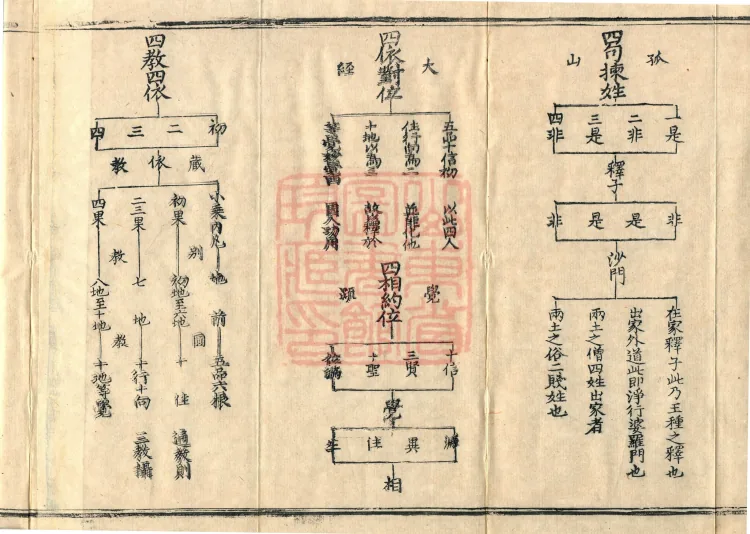 四句揀姓
孤山
一是
二非
三是
四非
釋子
非
是
是
非
沙門
在家釋子此乃王種之釋也
出家外道此即淨行婆羅門也
兩土之僧四姓出家者
兩土之俗二賤姓也
四依對位
大經
五品十信初 以此四人
住行向為二 並能化他
十地以為三 故釋於
四相約位
覺
十信
三賢
十聖
覺
滅
異
住
生
相
四教四依
初
二
三
四
依
藏教
小乘內凡 地前 五品六根
別圓
初果 初地至六地 十住 通教則
二三果 七地 十行十向 三教攝
教教
四果 八地至十地 十地等覺